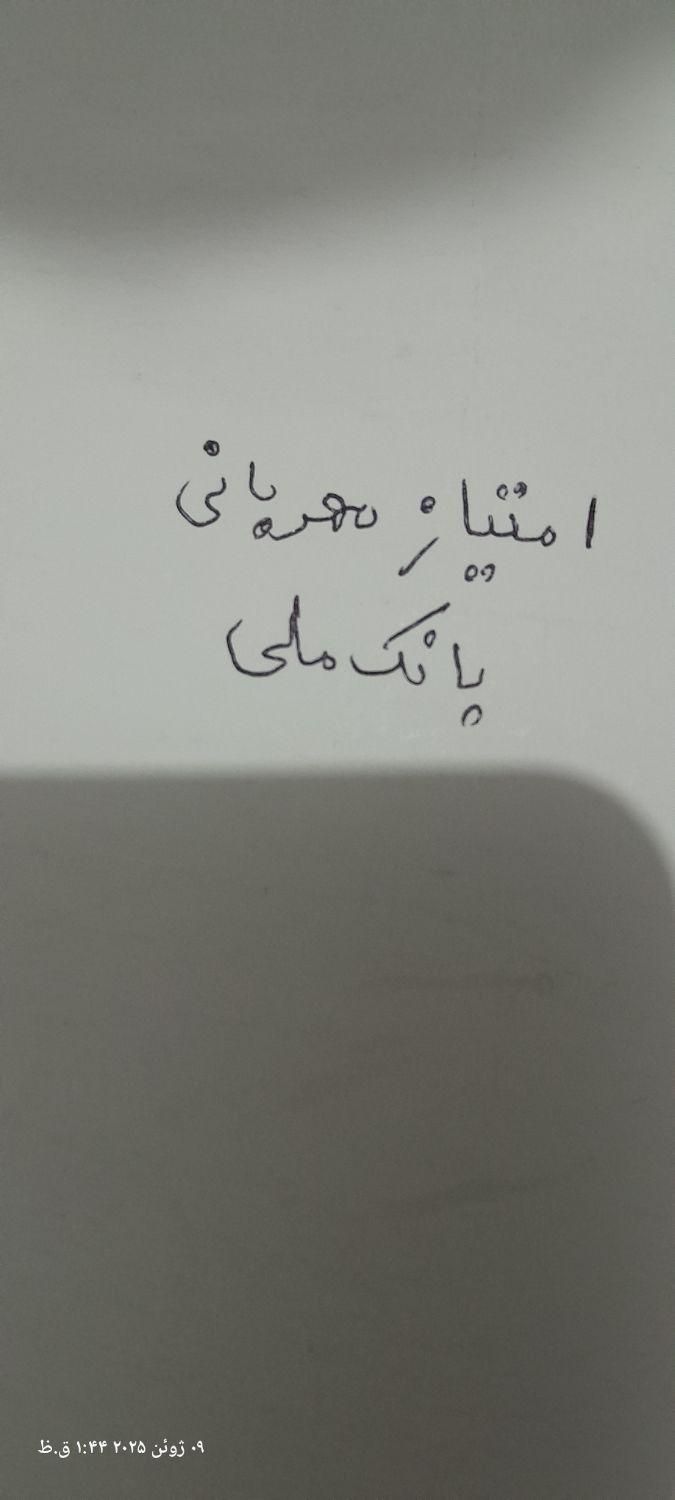 امتیازِ مهربانی
بانک ملی
۰۹ ژوئن ۲۰۲۵ ۱:۴۴ ق.ظ